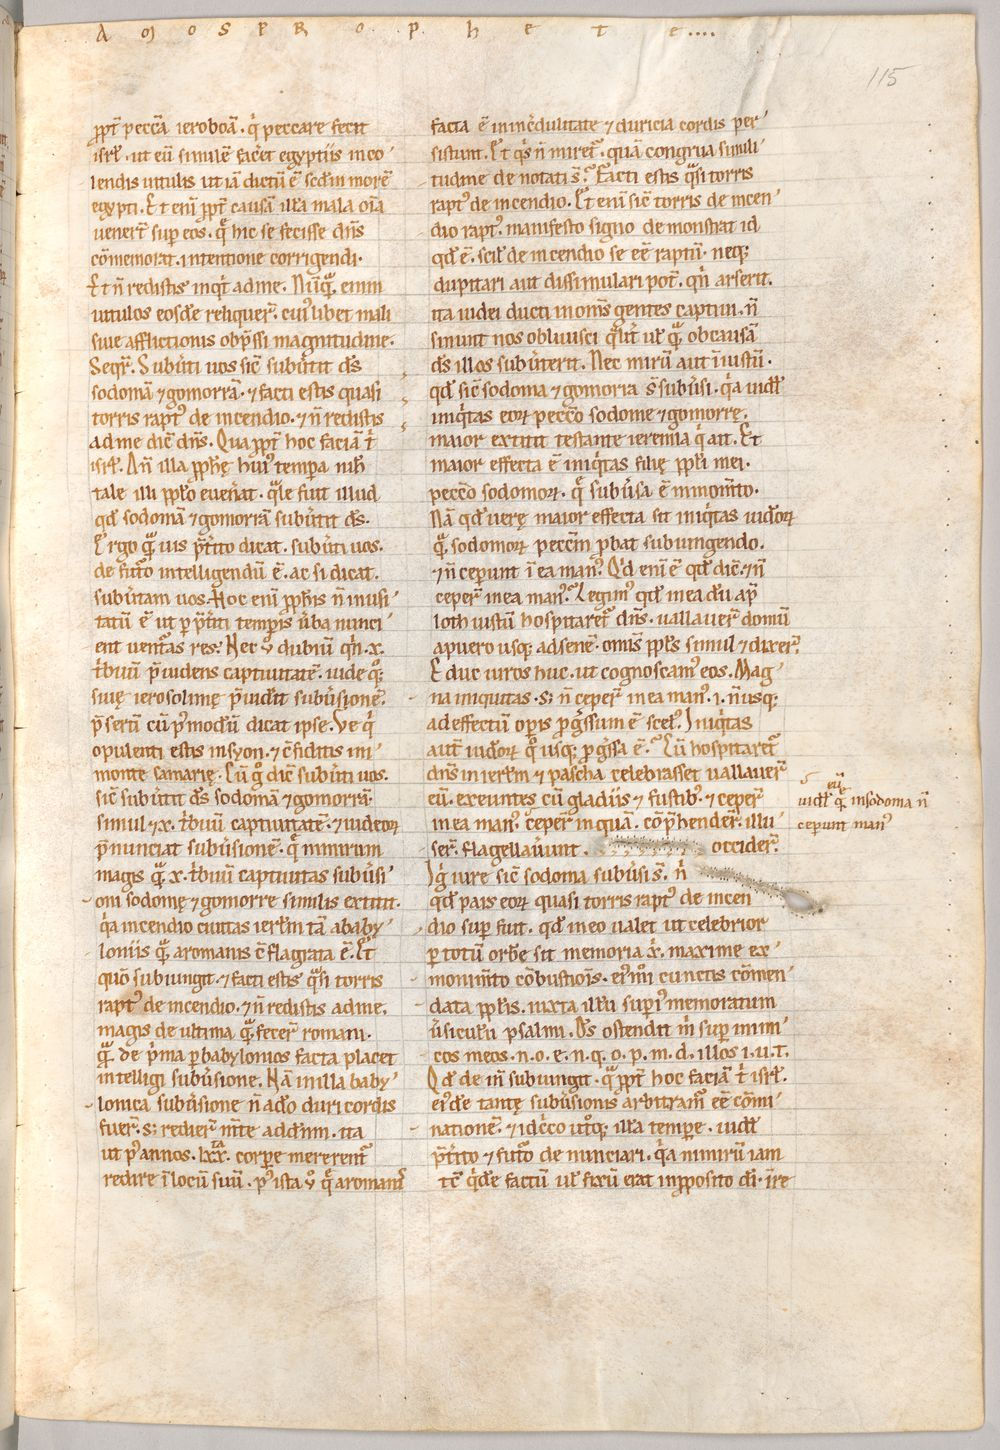 AMOS PROPHETE....
115
ꝓpt̄ peccā ieroboā. q̍ peccare fecit
isrl̄. ut eū similē facet̄ egyptiis in co'
lendis uitulis ut iā dictū ē scdm morē
egypti. Et eni ꝓpt̄ causā illā mala oīa
uener̄t sup eos. q̄ hic se fecisse dn̄s
cōmemorat. intentione corrigendi.
Et n̄ redistis inqt̍ ad me. Nūq̄ enim
uitulos eosdē reliquer̄. cui'libet mali
siue afflictionis obp̄ssi magnitudine.
Seqr̄. Subūti uos sic̄ subūtit ds̄
sodomā ⁊ gomorrā. ⁊ facti estis quasi
torris rapt' de incendio. ⁊ n̄ redistis
ad me dic̄ dn̄s. Qua ꝓpt̄ hoc faciā t̍
isrl̄. An̄ illa ꝓphę hui' tempa nih̄
tale illi ppl̄o euenāt. qͣle fuit illud
qd̄ sodomā ⁊ gomorrā subūtit ds̄.
Ergo qͣuis p̄t̍ito dicat. subūti uos.
de futo intelligendū ē. ac si dicat.
subūtam uos. Hoc eni ꝓphis n̄ inusi'
tatū ē ut p p̄t̍iti tempis ūba nunci'
ent uentas res. Nec ů dubiū qn̍. x.
t̍buū p̄uidens captiuitatē. uide qͦꝫ
suię ierosolimę p̄uidit subūsionē.
p̄sertī cū p̍modū dicat ipse. Ve q̍
opulenti estis in syon. ⁊ cfiditis in'
monte samarię. Cū gͦ dic̄ subūti uos.
sic̄ subūtit ds̄ sodomā ⁊ gomorrā.
simul ⁊ x. t̍buū captiuitatē. ⁊ iudeoꝝ
p̄nunciat subūsionē. q̄ nimirum
magis qͣ x. t̍buū captiuitas subūsi'
oni sodomę ⁊ gomorre similis extitit.
qa incendio ciuitas ierlm̄ tā a baby'
loniis qͣ a romanis cflagrata ē. Et
quō subiungit. ⁊ facti estis qͣsi torris
rapt' de incendio. ⁊ n̄ redistis ad me.
magis de ultima qͣ fecer̄ romani.
qͣ de p̍ma p babylonios facta placet
intelligi subūsione. Nā in illa baby'
lonica subūsione n̄ adō duri cordis
fuer̄. sꝫ redier̄ mt̄e ad dnm. ita
ut p' annos. lxx. corpe mererent̄
redire ī locū suū. p' ista ů q̄ a romanis
facta ē in inc̄dulitate ⁊ duricia cordis per'
sistunt. Et qs̍ n̄ miret̄. quā congrua simili'
tudine de notati s̄. Facti estis qͣsi torris
rapt' de incendio. Et eni sic̄ torris de incen'
dio rapt'. manifesto signo de monstrat id
qd̄ ē. scil̄ de incendio se eē raptū. neqꝫ
dupitari aut dissimulari pot̄. qn̍ arserit.
ita iudei ducti in om̄s gentes captiui. n̄
sinunt nos obliuisci qͣlit̄ ul̄ qͣ ob causā
ds̄ illos subūterit. Nec mirū aut iniustū.
qd̄ sic̄ sodoma ⁊ gomorra s̄ subūsi. qa uidl̄
iniqtas eoꝝ peccō sodome ⁊ gomorrę.
maior extitit testante ieremia q̍ ait. Et
maior effecta ē iniqtas filię ppl̄i mei.
peccō sodomoꝝ. q̄ subūsa ē in momto.
Nā qd̄ uerę maior effecta sit iniqtas iudeoꝝ
qͣ sodomoꝝ peccm̄ pbat subiungendo.
⁊ n̄ cepunt ī ea man'. Qd̍ eni ē qd̄ dic̄. ⁊ n̄
ceper̄ in ea man'. Legim' qd̄ in ea dū ap̄
loth iustū hospitaret̄ dn̄s. uallauer̄ domū
a puero usqꝫ ad senē. omīs ppl̄s simul ⁊ dixer̄.
Educ uiros huc. ut cognoscam' eos. Mag'
na iniquitas. sꝫ n̄ ceper̄ in ea man'. i. n̄ usqꝫ
ad effectū opis pgssum ē scel'. Iniqtas
aut̄ iudeoꝝ qͦ usqꝫ pgssa ē. Cū hospitaret̄
dn̄s in ierlm̄ ⁊ pascha celebrasset uallauer̄
eū. exeuntes cū gladiis ⁊ fustib'. ⁊ ceper̄
in ea man'. ceper̄ inquā. cōp̄hender̄. illu'
ser̄. flagellauūnt. occider̄.
Ig̍ iure sic̄ sodoma subūsi s̄. n̍
qd̄ pars eoꝝ quasi torris rapt' de incen
dio sup fuit. qd̄ in eo ualet ut celebrior
p totū orbē sit memoria x̄. maxime ex'
monimto cōbustiōis. ei'mī cunctis cōmen'
data ppl̄is. iuxta illū sup̍i' memoratum
ūsiculū psalmi. Ds̄ ostendit m̍ sup inimi'
cos meos. n. o. e. n. q. o. p. m. d. illos i. u. t.
Qd̄ de in̄ subiungit. qͣ ꝓpt̄ hoc faciā t̍ isrl̄.
ei'dē tantę subūsionis arbitram̄ eē cōmi'
nationē. ⁊ idc̍co ut̍qꝫ illa tempe. uidl̄
p̄t̍ito ⁊ futo de nunciari. qa nimirū iam
tc̄ qd̍ē factū ul̄ fixū erat in ꝓposito di. ire
eūę
uidl̄ qͣ in sodoma n̄
cepunt man'